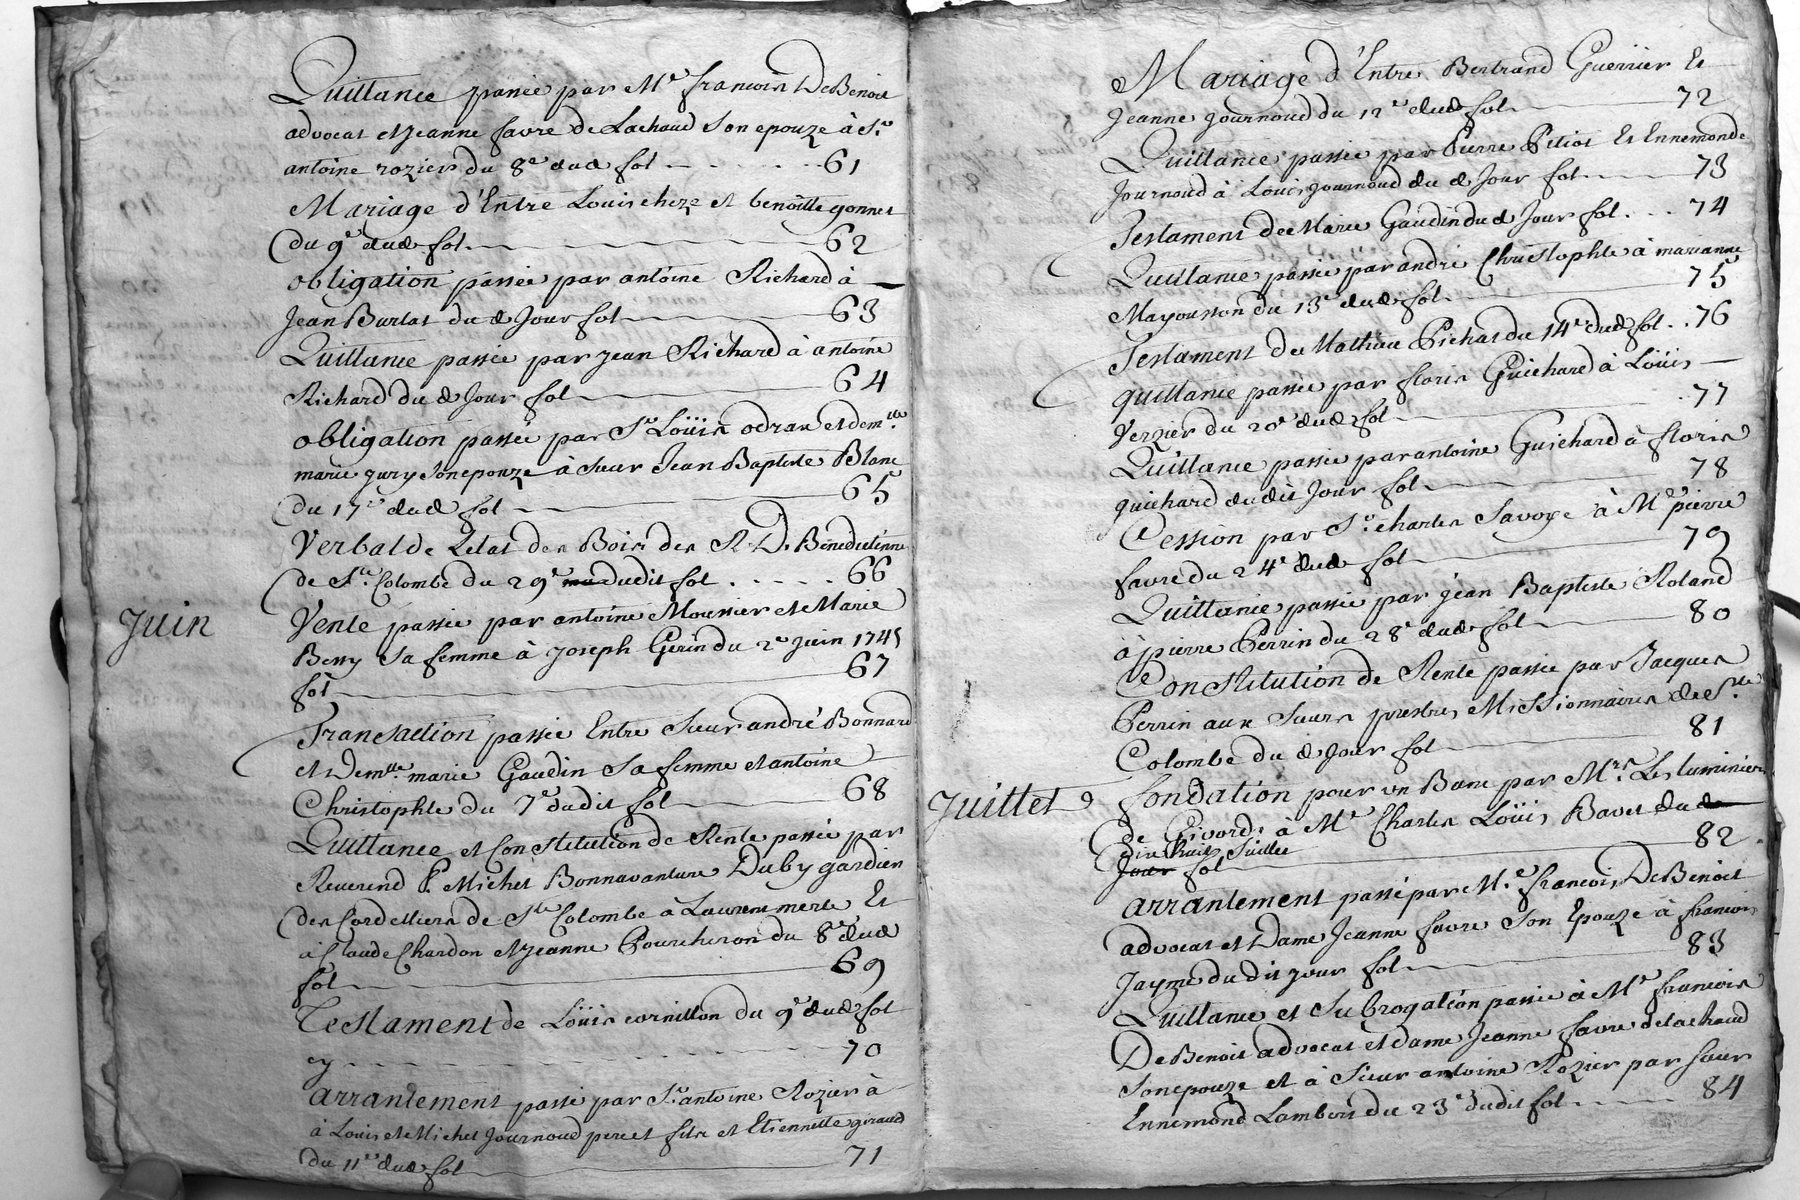 Quittance passée par Me francois DeBenoit
advocat et Jeanne favre de Lachaud son epouze à Sr
antoine roziers du 8e dud fol 61
Mariage d'Entre Louis cheze et benoitte gonnet
du 9e dud fol 62
obligation passée par antoine Richard à
Jean Burlat du d Jour fol 63
Quittance passée par jean Richard à antoine
Richard du d Jour fol 64
obligation passée par Sr Loüis odran et demlle
marie jury son epouze à Sieur Jean Baptiste Blanc
du 17e dud fol 65
Verbal de Letat des Bois des R. D. Benedictinne
de Ste Colombe du 29e dudit fol 66
Juin
Vente passée par antoine Moussier et Marie
Bessy sa femme à joseph Gerin du 2e juin 1745
fol 67
Transaction passée Entre Sieur andré Bonnard
et Demlle marie Gaudin sa femme et antoine
Christophle du 7e dudit fol 68
Quittance et Constitution de Rente passée par
Reverend P. Michel Bonnavanture Duby gardien
des Cordelliers de Ste Colombe à Laurent merle Et
à Claude Chardon et jeanne Pourcheron du 8e dud
fol 69
Testament de Loüis cornillon du 9e dud fol
cy 70
arrantement passé par Sr antoine Rozier à
à Louis et Michel Journoud pere et fils et Etiennette giraud
du 11e dud fol 71
Mariage d'Entre Bertrand Guerrier Et
Jeanne journoud du 12e dud fol 72
Quittance passée par Pierre Petiot Et Ennemonde
Journoud à Louis journoud du d Jour fol 73
Testament de Marie Gaudin du d Jour fol 74
Quittance passée par andré Christophle à marianne
Mayousson du 13e dud fol 75
Testament de Mathieu Pichat du 14e dud fol 76
quittance passée par floris Guichard à Loüis
Verzier du 20e dud fol 77
Quittance passée par antoine Guichard à floris
guichard dudit Jour fol 78
Cession par Sr charles Savoye à Me pierre
favre du 24e dud fol 79
Quittance passée par jean Baptiste Roland
à pierre Perrin du 28e dud fol 80
Constitution de Rente passée par Jacques
Perrin aux Sieurs prestres Missionnaires de Ste
Colombe du d Jour fol 81
Juillet
fondation pour un Banc par Mrs Les luminiers
de Givords à Me Charles Loüis Bavet du d
dix huit Juillet
Jour fol 82
arrantement passé par Me francois DeBenoit
advocat et Dame Jeanne favre son Epouze à francois
Jayme du dit jour fol 83
Quittance et subrogation passée à Me francois
DeBenoit advocat et dame Jeanne favre de lachaud
son epouze et à Sieur antoine Rozier par sieur
Ennemond Lambert du 23e dudit fol 84